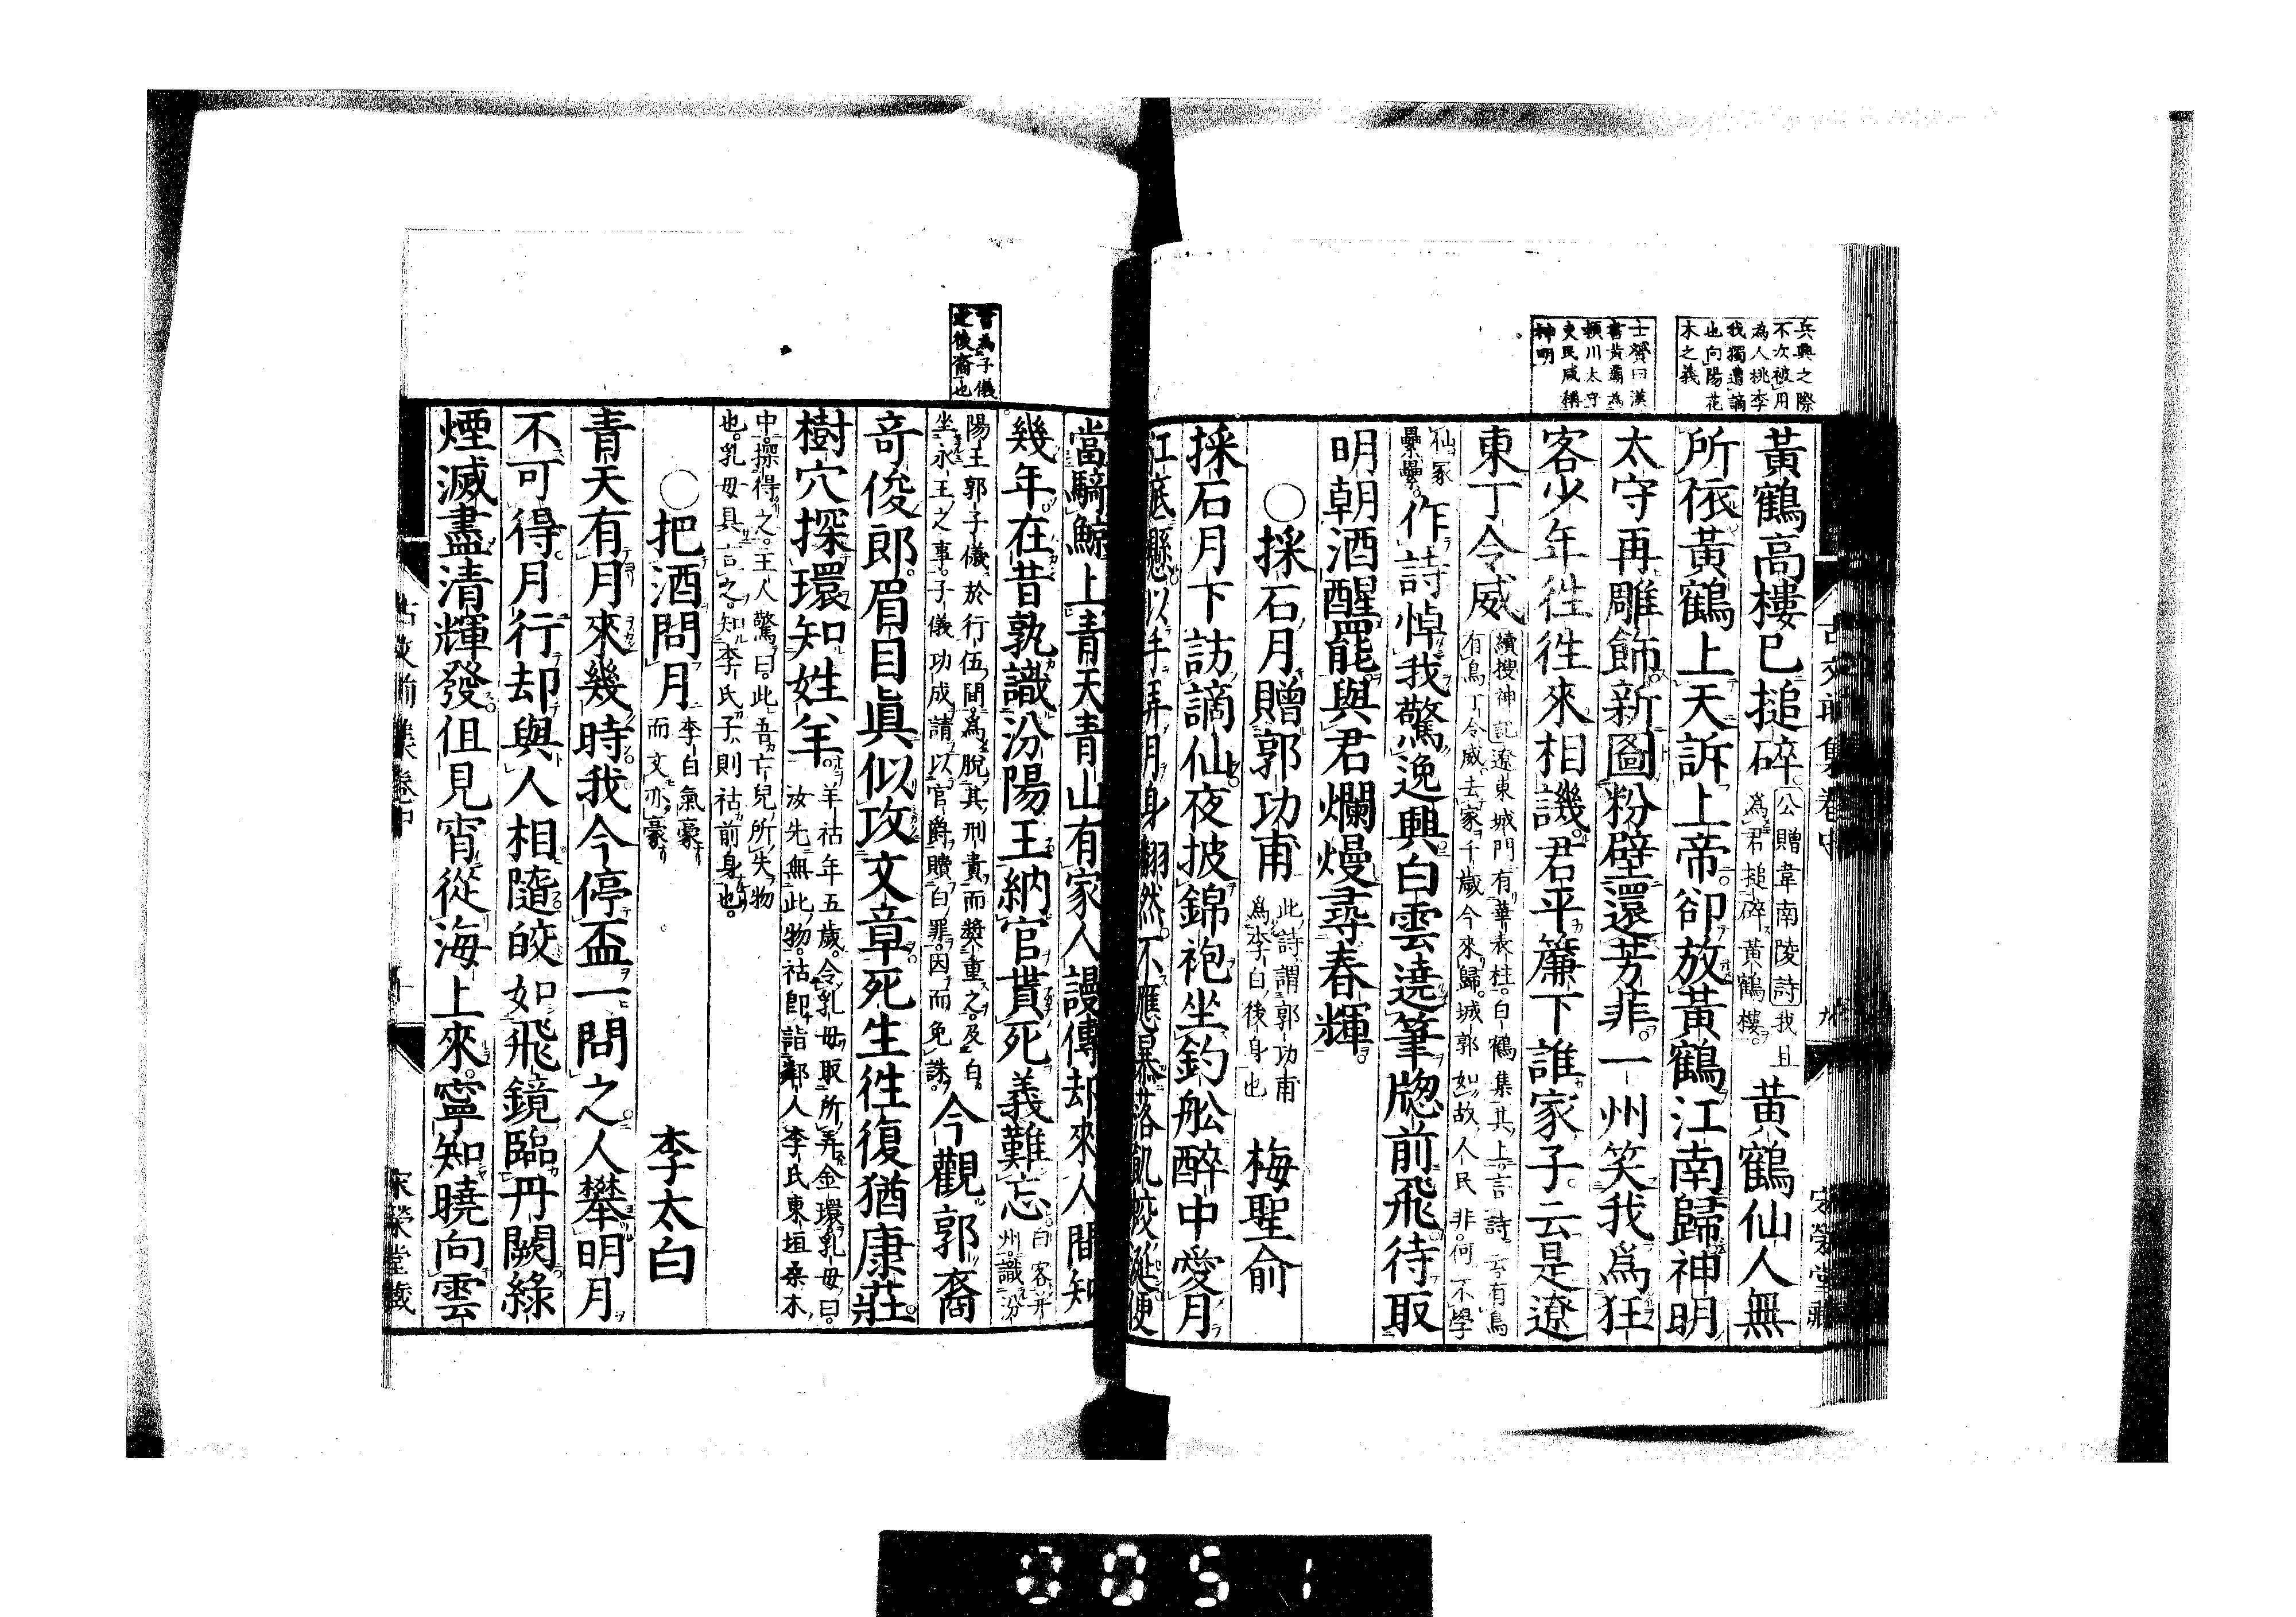 兵興之際
不次被用
為人桃李
我獨遭謫
也向陽花
木之義
士贇曰漢
書黃霸為
頴川太守
吏民咸稱
神明
黃鶴高樓已搥碎公贈韋南陵詩我且
為君搥碎黃鶴樓。黃鶴仙人無
所依黃鶴上天訴上帝卻放黃鶴江南歸神明
太守再雕飾新圖粉壁還芳菲。一州笑我爲狂
客少年往往來相譏君平簾下誰家子云是遼
東丁令威續搜神記遼東城門有華表柱。白鶴集其上言詩云有鳥
有鳥丁令威。去家千歲今來歸。城郭如故人民非。何不學
仙冢
纍纍。作詩悼我驚逸興白雲遶筆窓前飛待取
明朝酒醒罷與君爛熳尋春輝。
○採石月贈郭功甫此詩謂郭功甫
爲李白後身也 梅聖俞
採石月下訪謫仙夜披錦袍坐釣舩醉中愛月
江底懸以手弄月身翻然。不應暴落飢蛟涎便
古文前集卷中 九 宋榮堂藏
當騎鯨上青天青山有家人謾傳却來人間知
幾年在昔孰識汾陽王納官貰死義難忘。白客并
州。識汾
陽王郭子儀於行伍間。爲脫其刑責而奬重之。及白
坐永王之事。子儀功成請以官爵贖白罪。因而免誅。今觀郭裔
奇俊郎。眉目眞似攻文章死生往復猶康莊。
樹穴探環知姓羊。羊祜年五歲。令乳母取所弄金環乳母曰。
汝先無此物。祜即詣鄰人李氏東垣桑木
中。探得之。主人驚曰。此吾亡兒所失物
也。乳母具言之。知李氏子則祜前身也。
○把酒問月李白氣豪
而文亦豪 李太白
青天有月來幾時我今停盃一問之人攀明月
不可得。月行却與人相隨皎如飛鏡臨丹闕綠
煙滅盡清輝發但見宵從海上來。寧知曉向雲
書為子儀
之後裔也
古文前集卷中 十 宋榮堂藏
0051